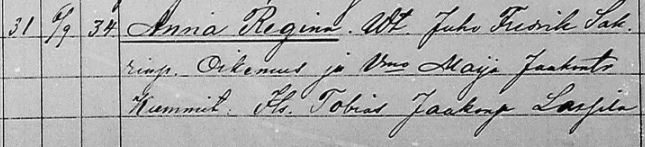 31 6/9 34 Anna Regina. Wt. Juho Fredrik Sak.
rinp. Oikemus ja Vmo Maija Jaakonts
Kummit. Ils. Tobias Jaakonp Lassila